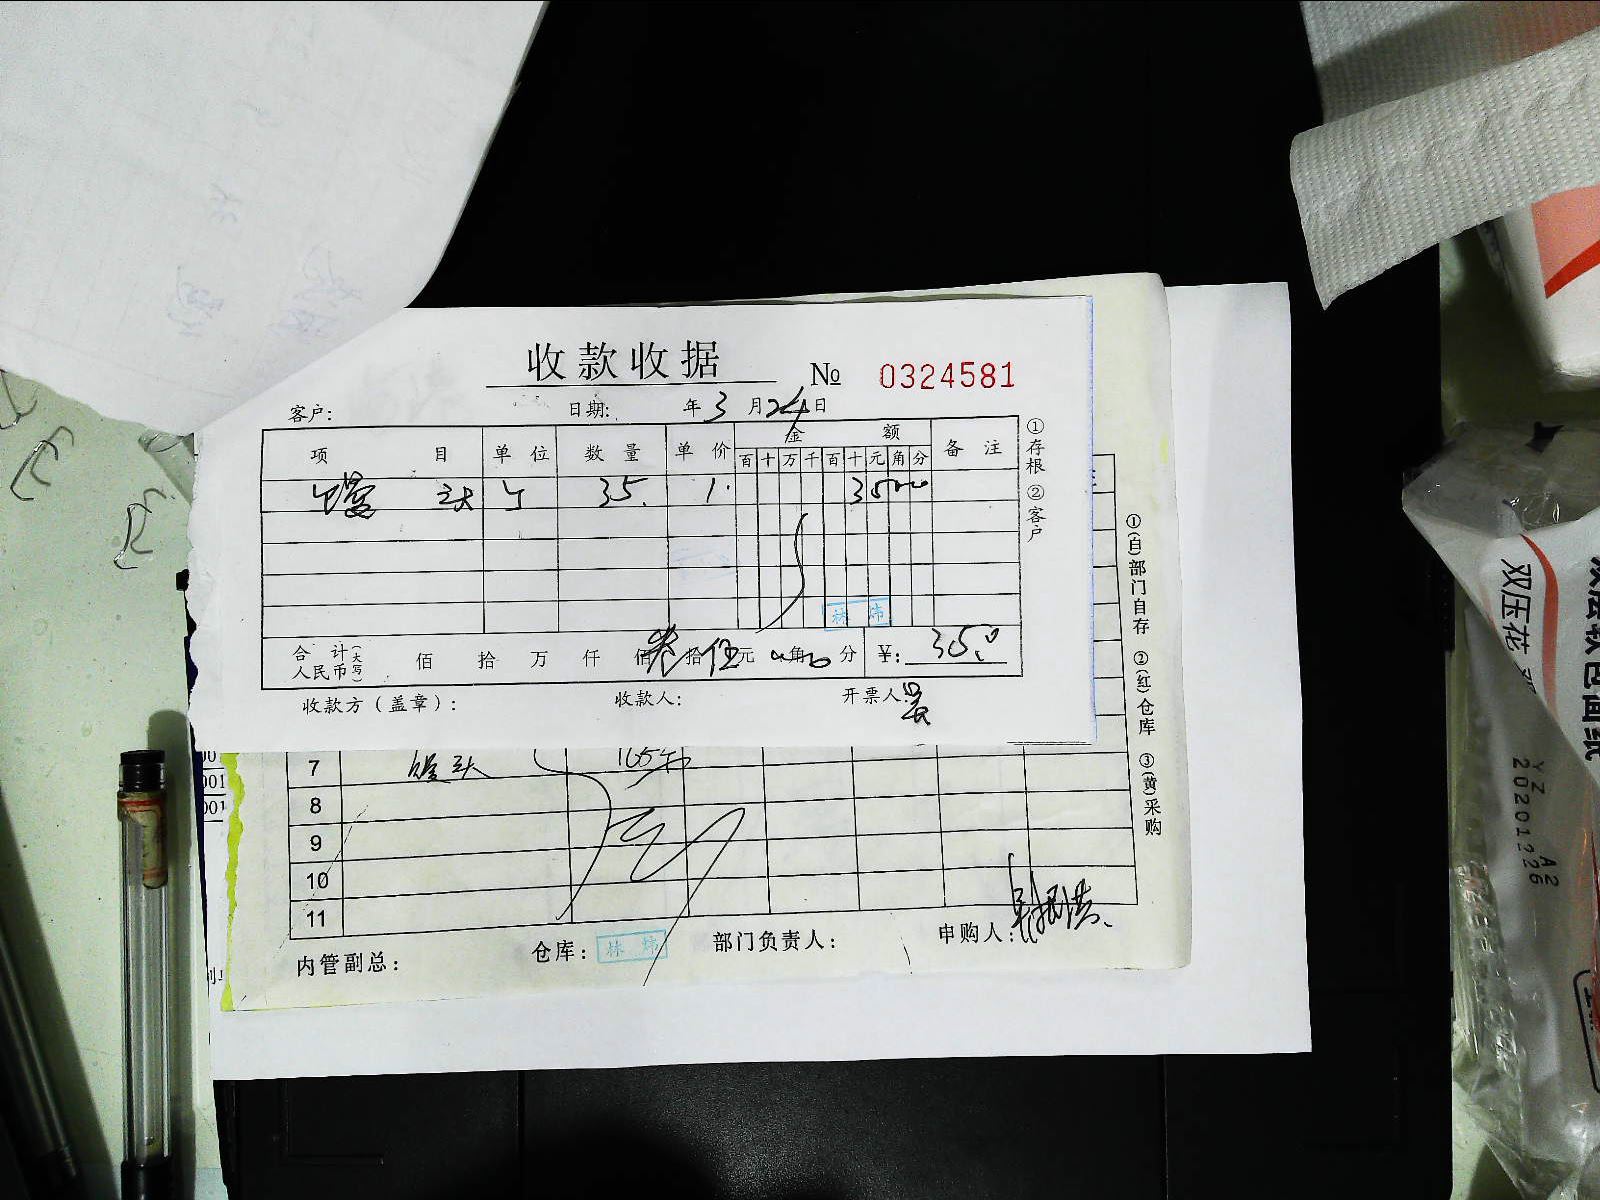 收款收据
№ 0324581
客户: 日期: 年 3 月 24 日
项 目 单位 数量 单价 金 额 备注
百 十 万 千 百 十 元 角 分
馒头 个 35. 1. 3500
林 炜
合计 人民币 (大写) 佰 拾 万 仟 佰 叁 拾 伍 元 角 分 ¥: 35.0
收款方(盖章): 收款人: 开票人:
①存根 ②客户
7 馒头 165个
8
9
10
11
内管副总: 仓库: 林 炜 部门负责人: 申购人:
①(自)部门自存 ②(红)仓库 ③(黄)采购
001
001
双压花
YZ A2
20201226